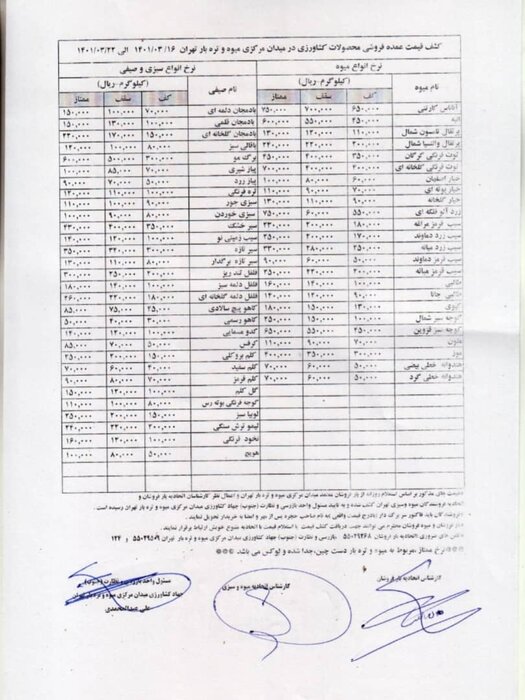 کشف قیمت عمده فروشی محصولات کشاورزی در میدان مرکزی میوه و تره بار تهران ۱۴۰۱/۰۳/۱۶ الی ۱۴۰۱/۰۳/۲۲
نرخ انواع میوه نرخ انواع سبزی و صیفی
نام میوه (کیلوگرم-ریال) نام صیفی (کیلوگرم-ریال)
کف سقف ممتاز کف سقف ممتاز
آناناس کارتنی ۶۵۰,۰۰۰ ۷۰۰,۰۰۰ ۷۵۰,۰۰۰ بادمجان دلمه ای ۷۰,۰۰۰ ۱۰۰,۰۰۰ ۱۵۰,۰۰۰
انبه ۴۵۰,۰۰۰ ۵۵۰,۰۰۰ ۶۰۰,۰۰۰ بادمجان قلمی ۱۰۰,۰۰۰ ۱۳۰,۰۰۰ ۱۵۰,۰۰۰
پرتقال تامسون شمال ۱۱۰,۰۰۰ ۱۲۰,۰۰۰ ۱۳۰,۰۰۰ بادمجان گلخانه ای ۱۵۰,۰۰۰ ۱۷۰,۰۰۰
پرتقال والنسیا شمال ۲۰۰,۰۰۰ ۲۲۰,۰۰۰ ۲۴۰,۰۰۰ باقالی سبز ۸۰,۰۰۰ ۱۰۰,۰۰۰ ۱۲۰,۰۰۰
توت فرنگی گرگان ۲۵۰,۰۰۰ ۳۰۰,۰۰۰ برگ مو ۳۰۰,۰۰۰ ۵۰۰,۰۰۰ ۶۰۰,۰۰۰
توت فرنگی گلخانه ای ۲۰۰,۰۰۰ ۷۰۰,۰۰۰ پیاز شیری ۷۰,۰۰۰ ۸۵,۰۰۰ ۱۰۰,۰۰۰
خیار اصفهان ۶۰,۰۰۰ ۸۰,۰۰۰ ۱۰۰,۰۰۰ پیاز زرد ۵۰,۰۰۰ ۷۰,۰۰۰ ۹۰,۰۰۰
خیار بوته ای ۷۰,۰۰۰ ۹۰,۰۰۰ ۱۱۰,۰۰۰ تره فرنگی ۱۰۰,۰۰۰ ۱۱۰,۰۰۰ ۱۲۰,۰۰۰
خیار گلخانه ۹۰,۰۰۰ ۱۱۰,۰۰۰ ۱۳۰,۰۰۰ سبزی جور ۹۰,۰۰۰ ۱۰۰,۰۰۰ ۱۱۰,۰۰۰
زرد آلو ۵۵۰,۰۰۰ ۶۰۰,۰۰۰ ۷۵۰,۰۰۰ سبزی خوردن ۸۰,۰۰۰ ۹۰,۰۰۰ ۱۰۰,۰۰۰
سیب قرمز مراغه ۱۸۰,۰۰۰ ۲۰۰,۰۰۰ سیر خشک ۲۰۰,۰۰۰ ۳۵۰,۰۰۰
سیب زرد دماوند ۱۷۰,۰۰۰ ۲۰۰,۰۰۰ ۲۵۰,۰۰۰ سیب زمینی نو ۱۰۰,۰۰۰ ۱۲۰,۰۰۰ ۱۴۰,۰۰۰
سیب زرد میانه ۲۵۰,۰۰۰ ۲۸۰,۰۰۰ ۳۳۰,۰۰۰ سیر تازه ۳۰۰,۰۰۰ ۳۲۰,۰۰۰ ۳۵۰,۰۰۰
سیب قرمز دماوند ۵۰,۰۰۰ ۶۰,۰۰۰ ۹۰,۰۰۰ سیر تازه برگدار ۸۰,۰۰۰ ۱۱۰,۰۰۰ ۱۳۰,۰۰۰
سیب قرمز میانه ۲۰۰,۰۰۰ ۲۳۰,۰۰۰ ۲۵۰,۰۰۰ فلفل تند ریز ۲۰۰,۰۰۰ ۲۵۰,۰۰۰ ۳۰۰,۰۰۰
طالبی ۱۲۰,۰۰۰ ۱۴۰,۰۰۰ ۱۶۰,۰۰۰ فلفل دلمه سبز ۱۰۰,۰۰۰ ۱۴۰,۰۰۰ ۱۸۰,۰۰۰
طالبی ۹۰,۰۰۰ ۱۲۰,۰۰۰ ۱۴۰,۰۰۰ فلفل دلمه گلخانه ای ۱۸۰,۰۰۰ ۲۲۰,۰۰۰ ۲۶۰,۰۰۰
کیوی ۱۳۰,۰۰۰ ۱۵۰,۰۰۰ ۱۸۰,۰۰۰ کاهو پیچ سالادی ۲۵,۰۰۰ ۷۵,۰۰۰ ۸۵,۰۰۰
گوجه سبز شمال ۱۰۰,۰۰۰ ۱۵۰,۰۰۰ ۲۵۰,۰۰۰ کاهو رسمی ۳۰,۰۰۰ ۴۰,۰۰۰ ۵۰,۰۰۰
گوجه سبز قزوین ۲۵۰,۰۰۰ ۵۵۰,۰۰۰ ۶۵۰,۰۰۰ کدو مسمایی ۱۰۰,۰۰۰ ۱۲۰,۰۰۰ ۱۴۰,۰۰۰
ملون ۷۰,۰۰۰ ۹۰,۰۰۰ ۱۱۰,۰۰۰ کرفس ۵۰,۰۰۰ ۷۰,۰۰۰ ۸۵,۰۰۰
موز ۳۰۰,۰۰۰ ۳۵۰,۰۰۰ ۴۰۰,۰۰۰ کلم بروکلی ۱۵۰,۰۰۰ ۲۰۰,۰۰۰ ۲۵۰,۰۰۰
هندوانه خطی بیضی ۵۰,۰۰۰ ۶۰,۰۰۰ ۷۰,۰۰۰ کلم سفید ۴۰,۰۰۰ ۶۰,۰۰۰ ۷۰,۰۰۰
هندوانه خطی گرد ۵۰,۰۰۰ ۶۰,۰۰۰ ۷۰,۰۰۰ کلم قرمز ۷۰,۰۰۰ ۸۰,۰۰۰ ۹۰,۰۰۰
گل کلم ۱۰۰,۰۰۰ ۱۲۰,۰۰۰ ۱۵۰,۰۰۰
گوجه فرنگی بوته رس ۸۰,۰۰۰ ۱۰۰,۰۰۰ ۱۱۰,۰۰۰
لوبیا سبز ۱۵۰,۰۰۰ ۲۰۰,۰۰۰ ۲۵۰,۰۰۰
لیمو ترش سنگی ۲۰۰,۰۰۰ ۲۲۰,۰۰۰ ۲۴۰,۰۰۰
نخود فرنگی ۱۰۰,۰۰۰ ۱۳۰,۰۰۰ ۱۶۰,۰۰۰
هویج ۵۰,۰۰۰ ۸۰,۰۰۰ ۱۰۰,۰۰۰
قیمت های مذکور بر اساس استعلام روزانه از بار فروشان میدان مرکزی میوه و تره بار تهران و اعمال نظر کارشناسان اتحادیه بار فروشان و
اتحادیه فروشندگان میوه وسبزی تهران کشف شده و به تایید مسئول واحد بازرسی و نظارت (جنوب) جهاد کشاورزی میدان مرکزی میوه و تره بار تهران رسیده است .
*** نرخ ممتاز ,مربوط به میوه و تره بار دست چین,جدا شده و لوکس می باشد ***
کارشناس اتحادیه بار فروشان
کارشناس اتحادیه میوه و سبزی
مسئول واحد بازرسی و نظارت (جنوب)
جهاد کشاورزی میدان مرکزی میوه و تره بار تهران
علی عبدالمحمدی